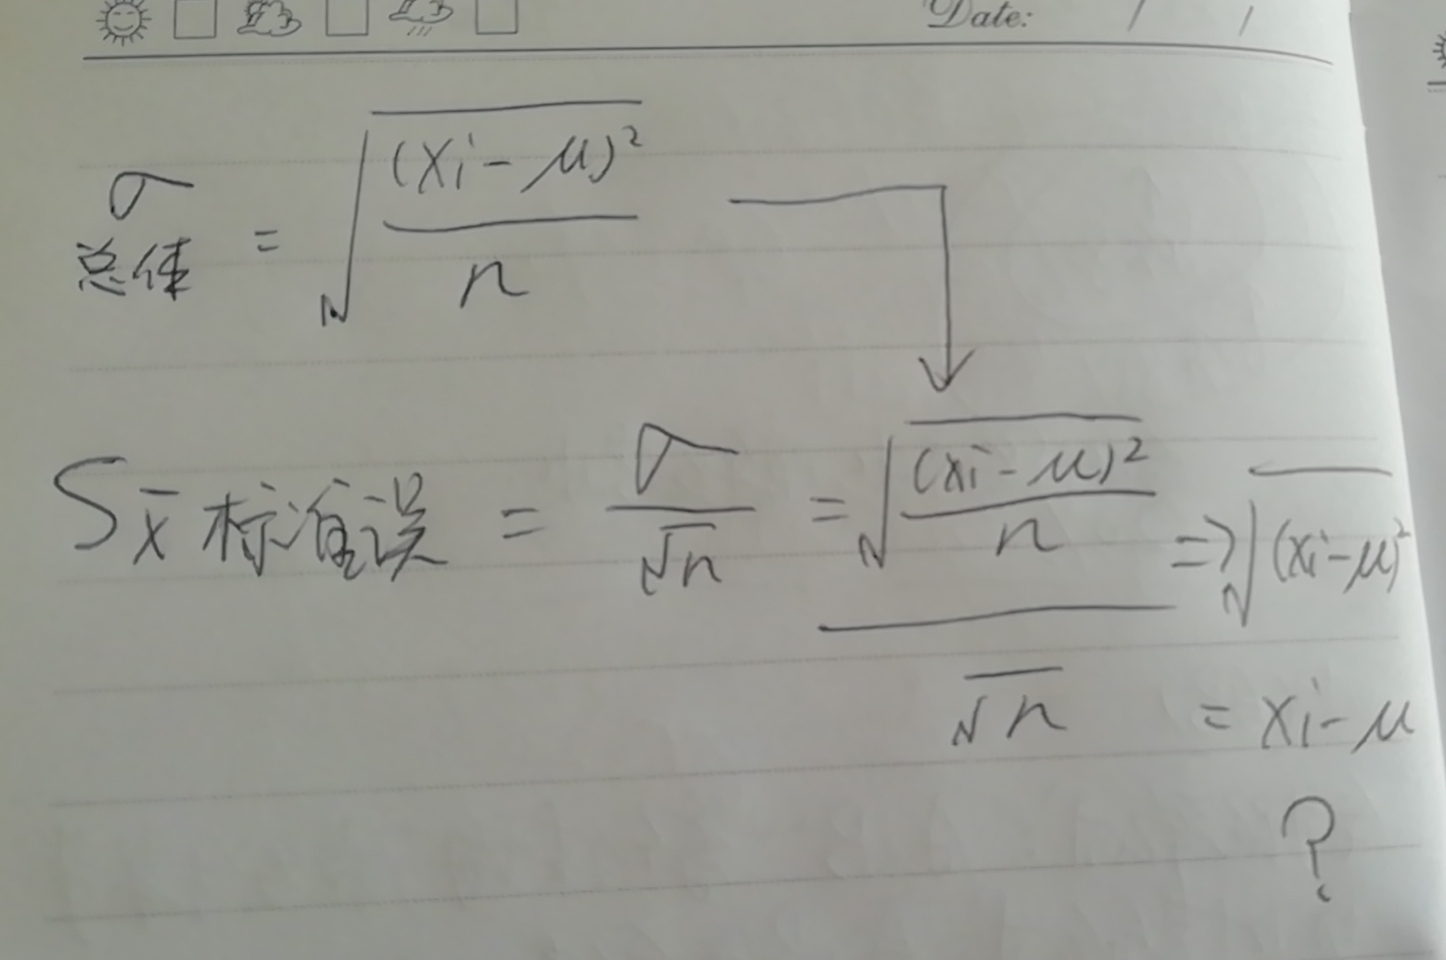 Date: / /
σ总体 = √((xi - μ)² / n)
S x̄ 标准误 = σ/√n = √((xi - μ)² / n) / √n => √(xi - μ)²
= xi - μ
?